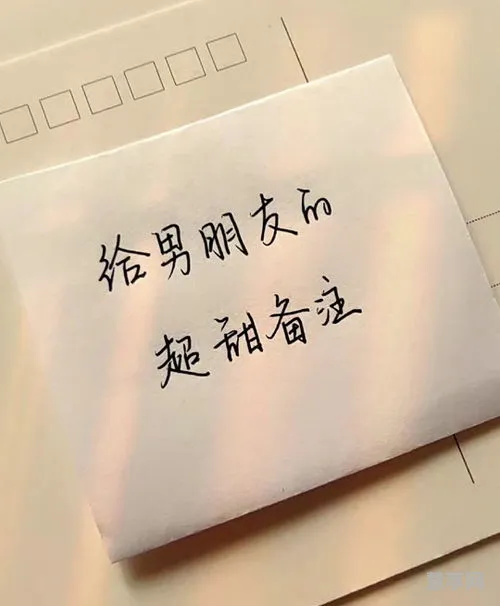 给男朋友的
超甜备注